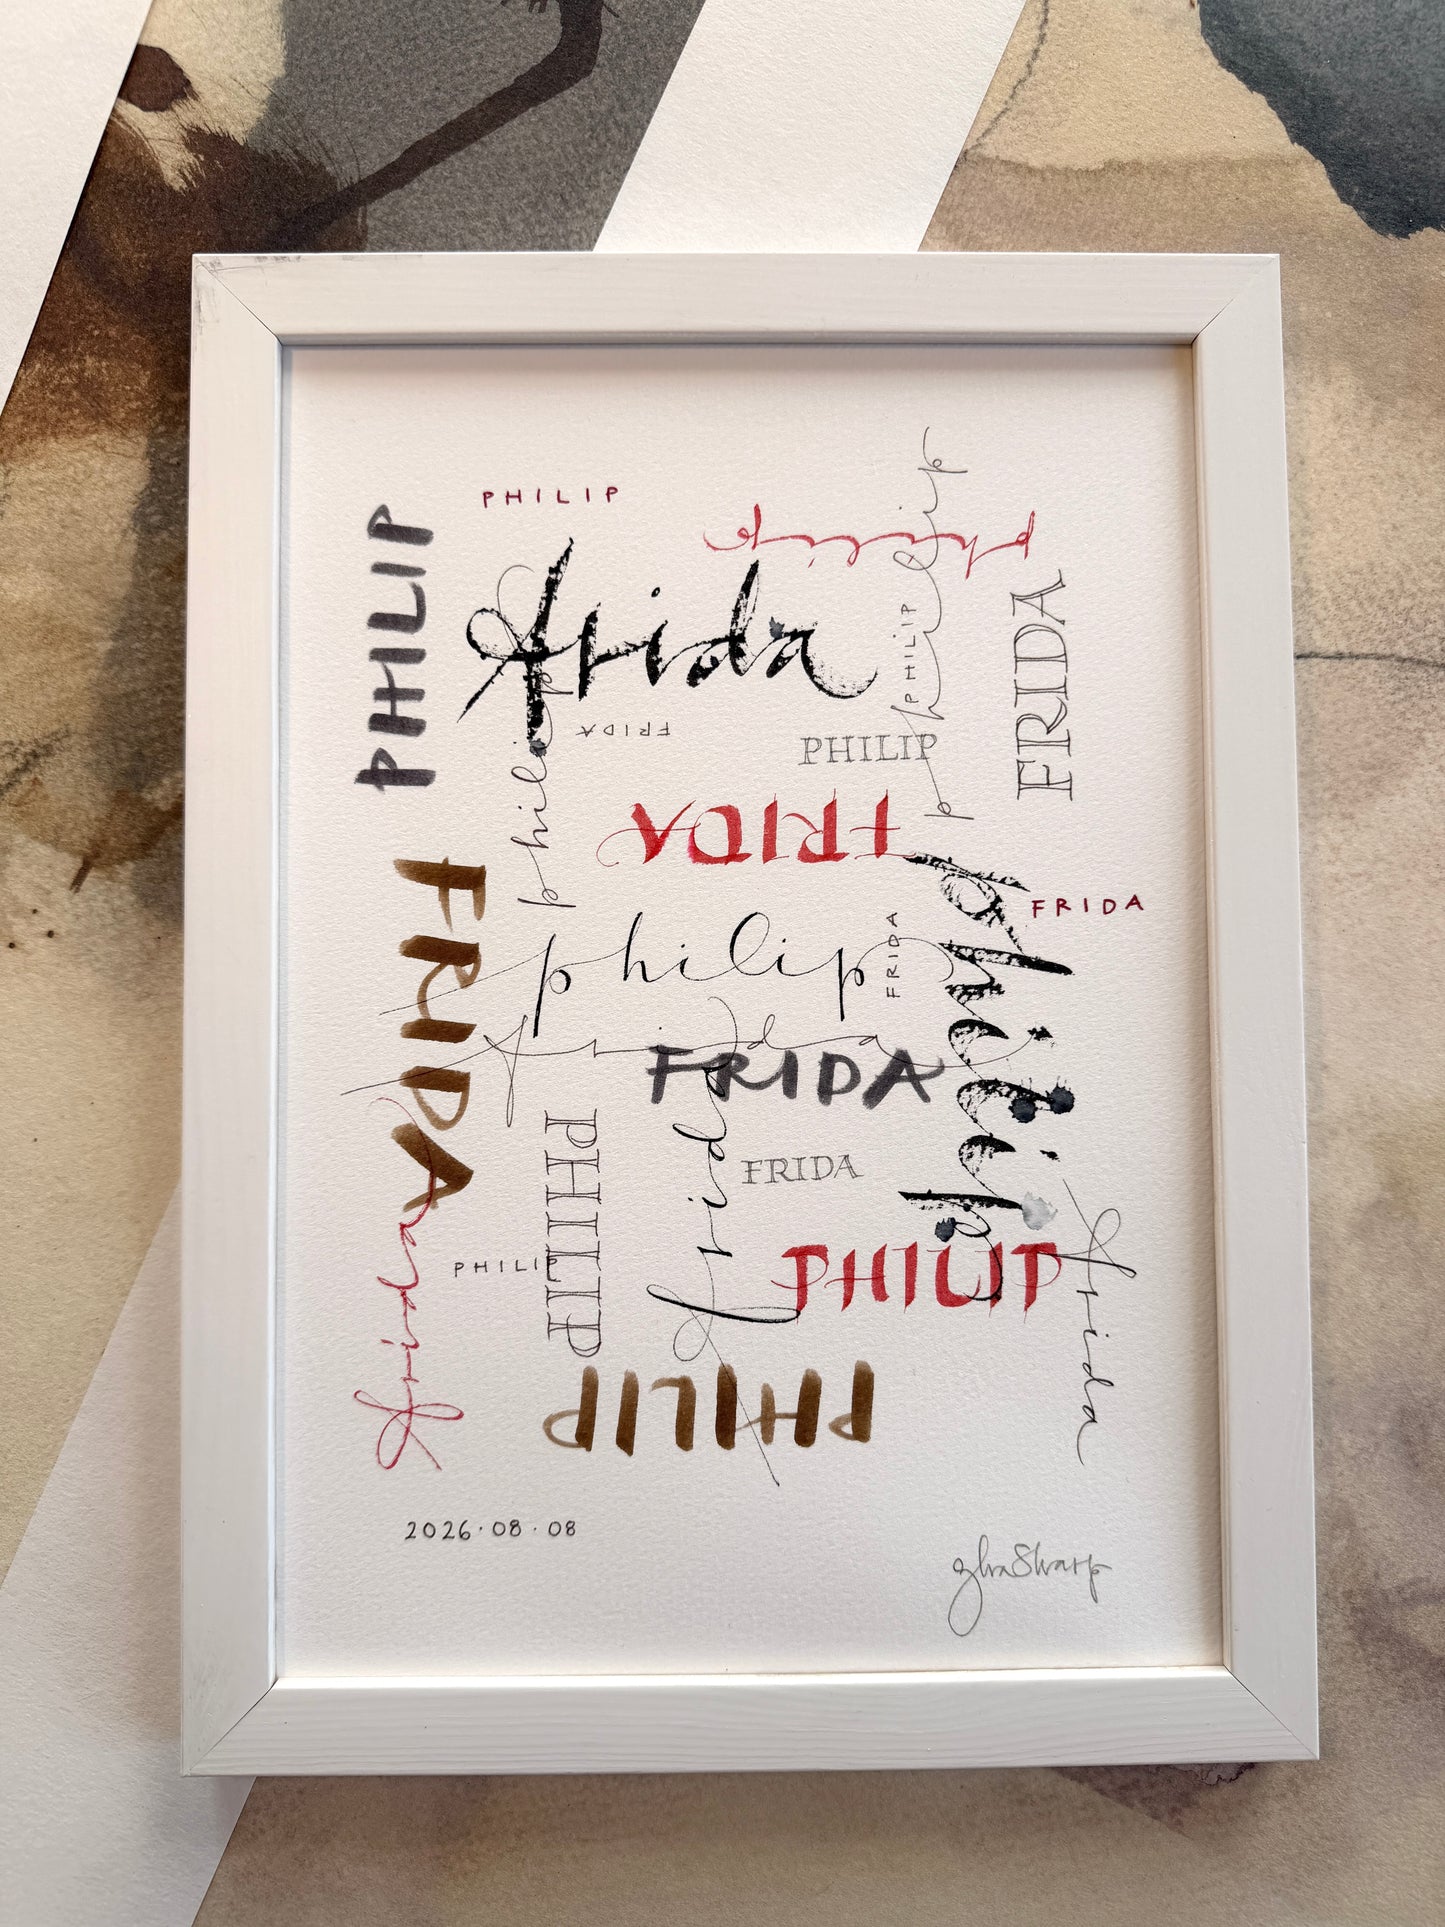 PHILIP
philip
philip
PHILIP
frida
PHILIP
FRIDA
FRIDA
PHILIP
philip
FRIDA
FRIDA
philip
FRIDA
philip
FRIDA
frida
FRIDA
frida
PHILIP
FRIDA
frida
PHILIP
frida
PHILIP
PHILIP
2026·08·08
ylvaSkarp